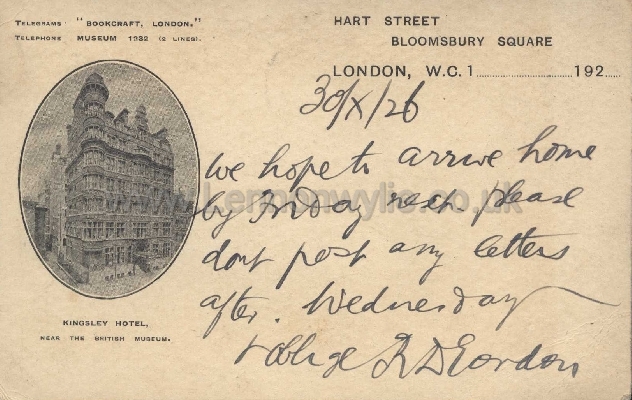 TELEGRAMS "BOOKCRAFT, LONDON."
TELEPHONE MUSEUM 1232 (2 LINES).
HART STREET
BLOOMSBURY SQUARE
LONDON, W.C.1 192
30/X/26
We hope to arrive home
by Friday next please
dont post any letters
after. Wednesday
& oblige R D Gordon
KINGSLEY HOTEL,
NEAR THE BRITISH MUSEUM.
www.Lennonwylie.co.uk